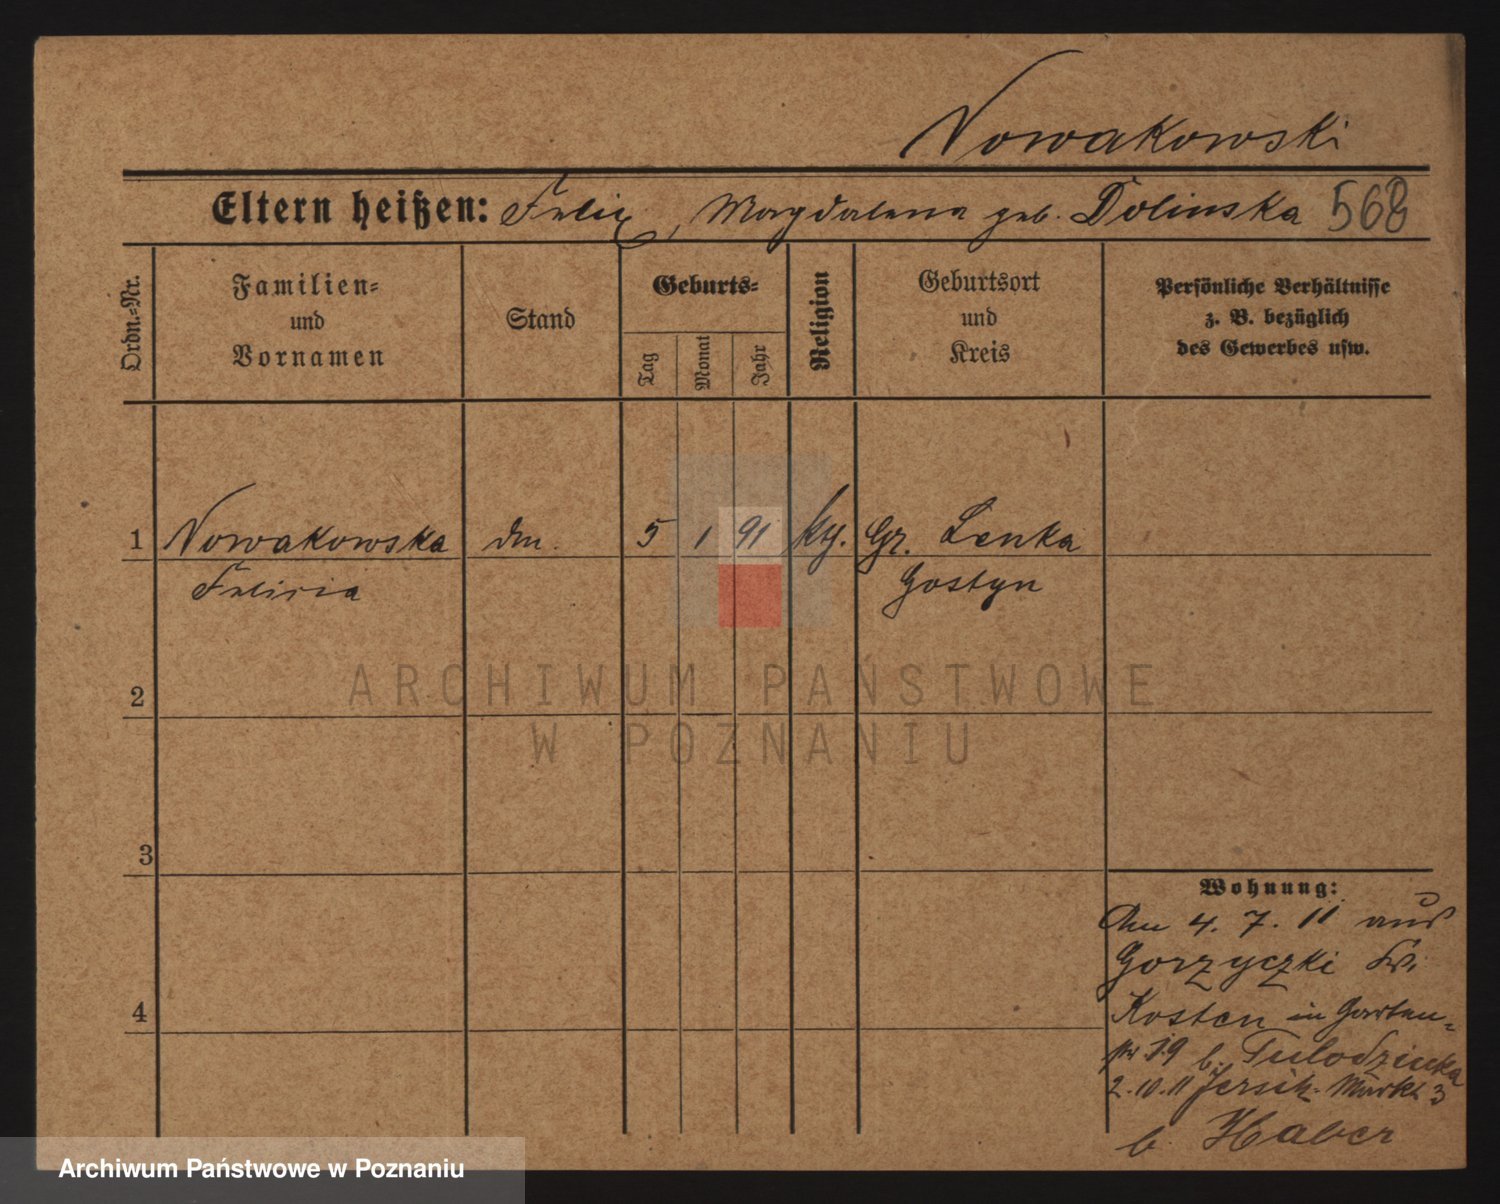 Nowakowski
Eltern heißen: Felix, Magdalena geb. Dolinska 568
Ordn.=Nr.
Familien=
und
Vornamen
Stand
Geburts=
Tag
Monat
Jahr
Religion
Geburtsort
und
Kreis
Persönliche Verhältnisse
z. B. bezüglich
des Gewerbes usw.
1 Nowakowska dm. 5 1 91 kth. Gr. Lenka
Felicia Gostyn
2
3
4
Wohnung:
Am 4. 7. 11 aus
Gorzyczki Kr.
Kosten in Garten=
str 19 b. Tulodziecka
2.10.11 Jersitz. Markt 3
b. Haber
ARCHIWUM PAŃSTWOWE
W POZNANIU
Archiwum Państwowe w Poznaniu